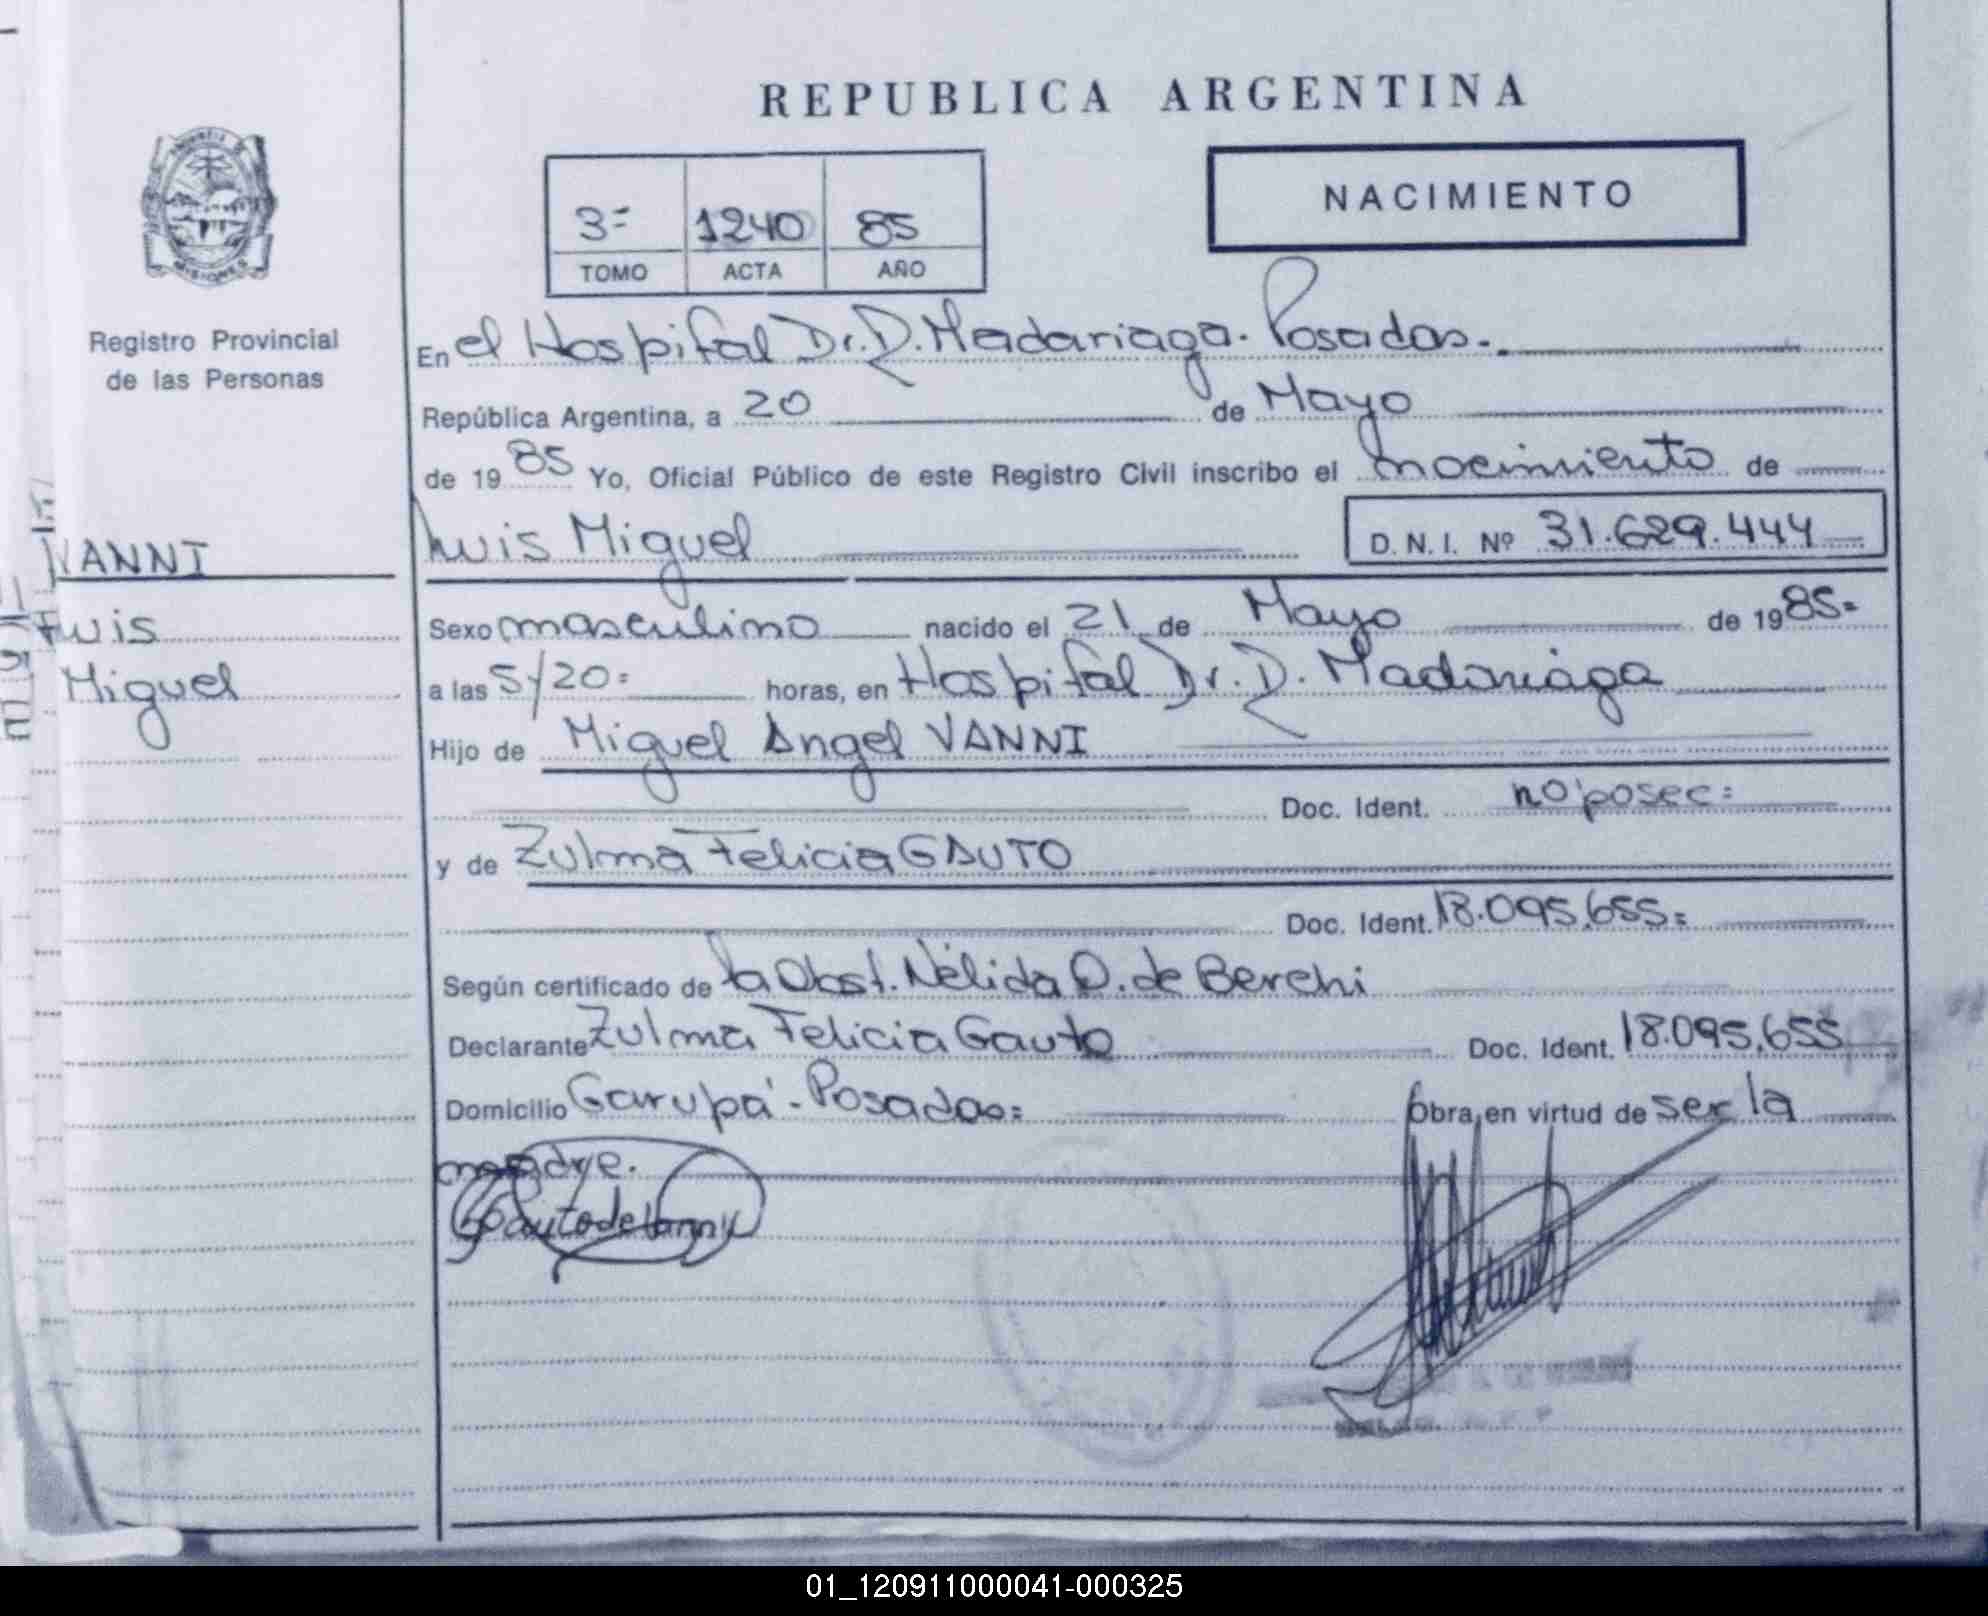 REPUBLICA ARGENTINA
NACIMIENTO
3= 1240 85
TOMO ACTA AÑO
MISIONES
Registro Provincial
de las Personas
En el Hospital Dr. D. Madariaga. Posadas.
República Argentina, a 20 de Mayo
de 1985 Yo, Oficial Público de este Registro Civil inscribo el nacimiento de
VANNI
Luis Miguel
D. N. I. Nº 31.629.444
Luis
Miguel
Sexo masculino nacido el 21 de Mayo de 1985=
a las 5/20= horas, en Hospital Dr. D. Madariaga
Hijo de Miguel Angel VANNI
Doc. Ident. no posee=
y de Zulma Felicia GAUTO
Doc. Ident. 18.095.655=
Según certificado de la Obst. Nélida O. de Berchi
Declarante Zulma Felicia Gauto Doc. Ident. 18.095.655
Domicilio Garupá - Posadas= Obra en virtud de ser la
madre.
Gauto de Vanni
01_120911000041-000325